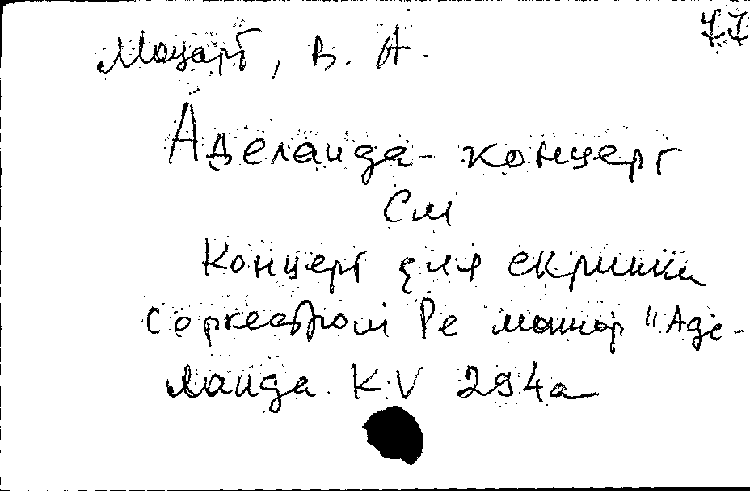 77
Моцарт, В. А.
Аделаида-концерт
См
Концерт для скрипки
с оркестром Ре мажор "Аде-
лаида. KV 294а